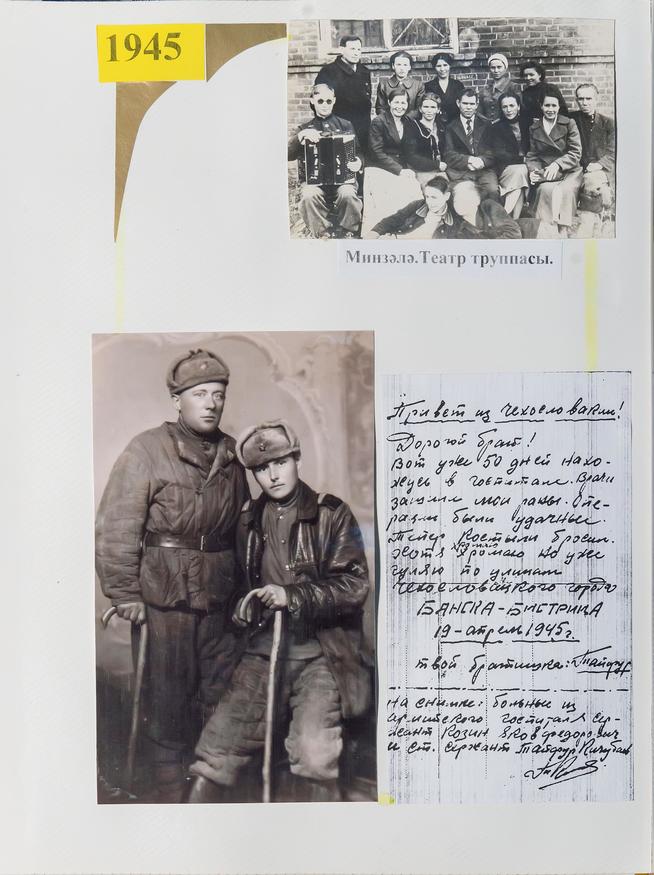 1945
Минзәлә.Театр труппасы.
Привет из Чехословакии!
Дорогой брат!
Вот уже 50 дней нахо-
жусь в госпитале. Врачи
зашили мои раны. Опе-
рации были удачные.
Теперь костыли бросил.
Хотя хромаю но уже
гуляю по улицам
Чехословацкого города
БАНСКА-БИСТРИЦА
19-апрель 1945г.
твой братишка: Тайфур
на снимке: больные из
армейского госпиталя сер-
жант Козин Яков Федорович
и ст. сержант Тайфур